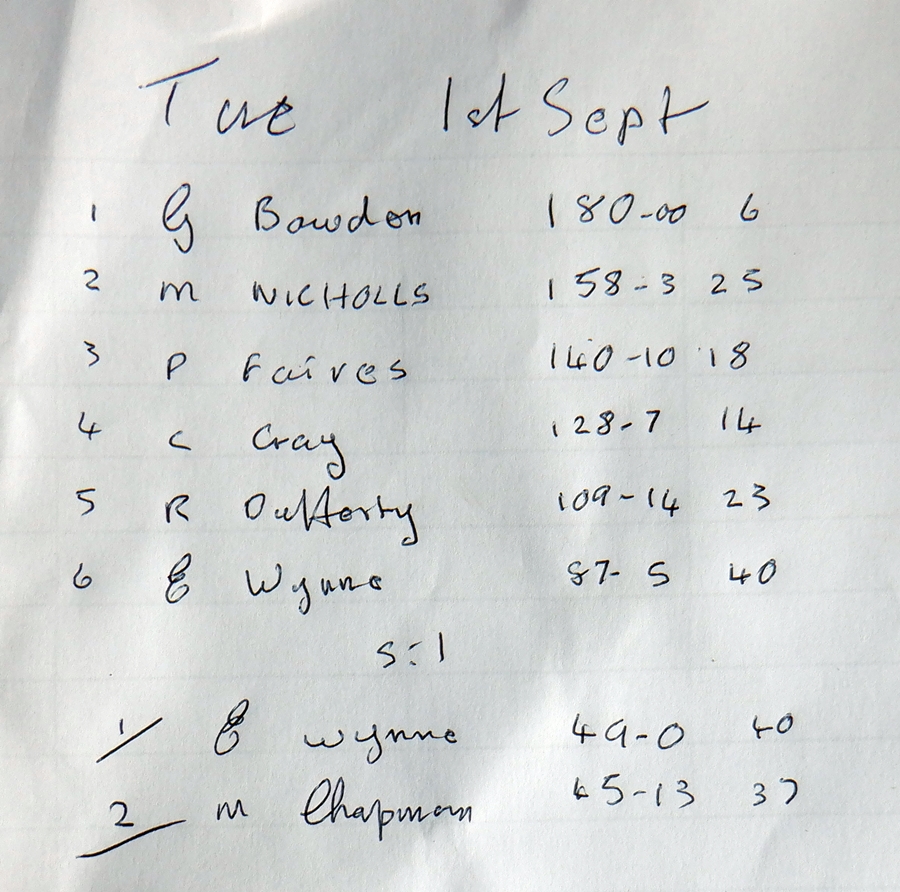 Tue 1st Sept
1 G Bowden 180-00 6
2 M NICHOLLS 158-3 25
3 P Faires 140-10 18
4 C Cray 128-7 14
5 R Dufferty 109-14 23
6 E Wynne 87-5 40
S:1
1/ E Wynne 49-0 40
2 M Chapman 45-13 37